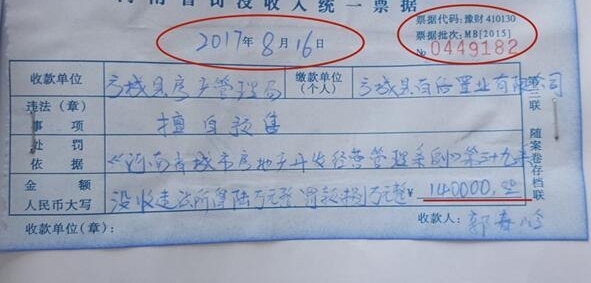 河南省罚没收入统一票据
票据代码:豫财 410130
票据批次:MB[2015]
2017年8月16日
№0449182
收款单位 方城县房产管理局 缴款单位(个人) 方城县百合置业有限公司
违法(章)事项 擅自预售
处罚依据 《河南省城市房地产开发经营管理条例》第三十九条
金额人民币大写 没收违法所得陆万元整 罚款捌万元整 ¥ 140000.
收款单位(章): 收款人:
第三联 随案卷存档联